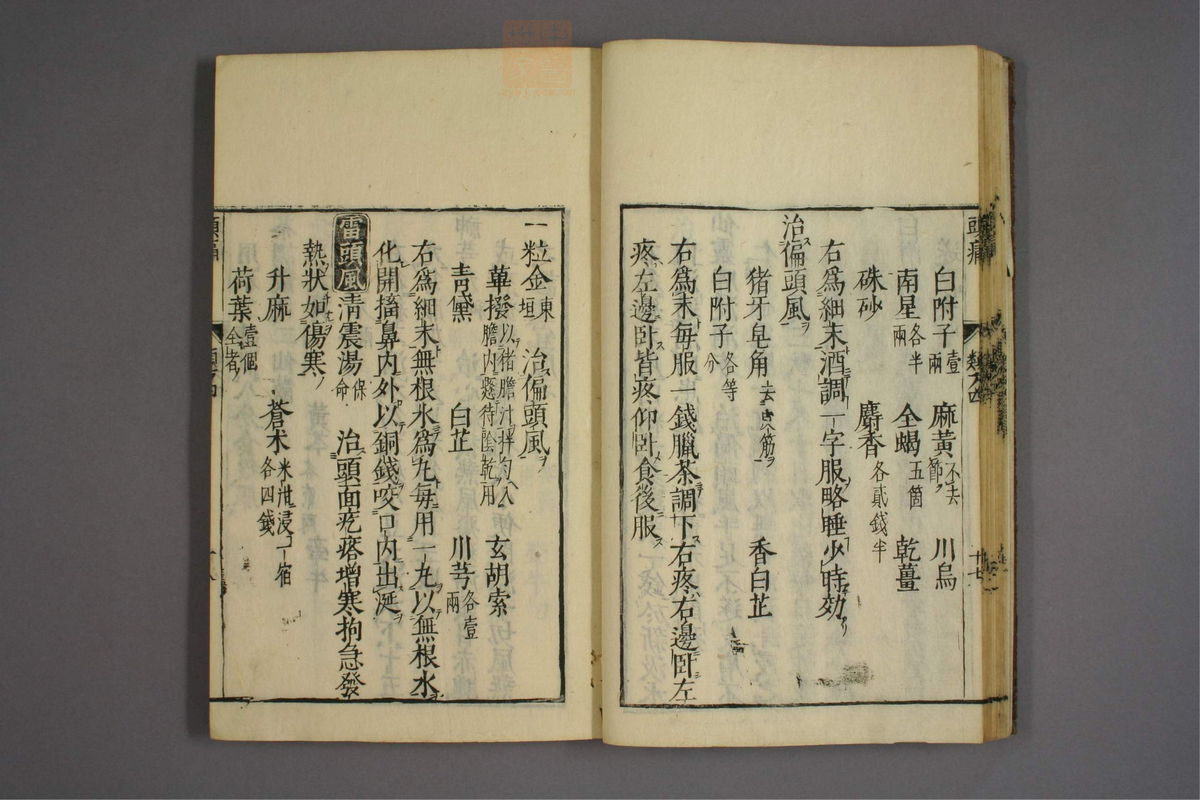 頭痛
白附子壹兩 麻黃不去節 川烏
南星各半兩 全蝎五箇 乾薑
硃砂 麝香各貳錢半
右爲細末酒調一字服略睡少時効
治偏頭風
猪牙皂角去皮筋 香白芷
白附子各等分
右爲末每服一錢臘茶調下右疼右邊卧左
疼左邊卧皆疼仰卧食後服
十七
一粒金東垣 治偏頭風
蓽撥以猪膽汁拌匀入膽内懸待陰乾用 玄胡索
青黛 白芷 川芎各壹兩
右爲細末無根水爲丸每用一丸以無根水
化開搐鼻内外以銅錢咬口内出涎
雷頭風 清震湯保命 治頭面疙瘩增寒拘急發
熱狀如傷寒
升麻 蒼朮米泔浸一宿各四錢
荷葉壹個全者
頭痛